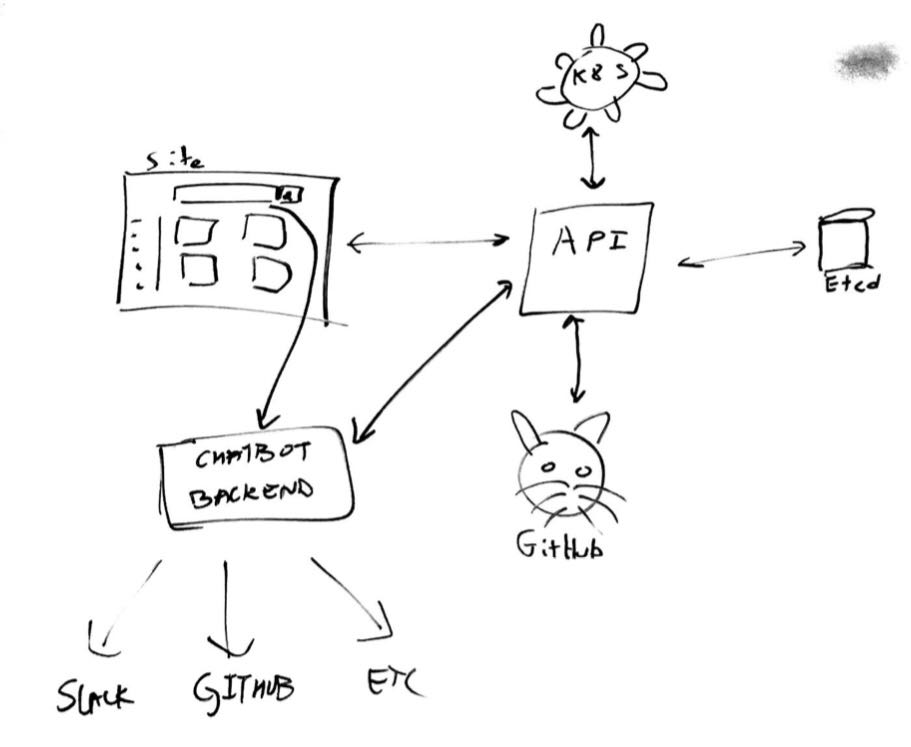 K8S
Site
API
Etcd
CHATBOT
BACKEND
GitHub
SLACK
GITHUB
ETC